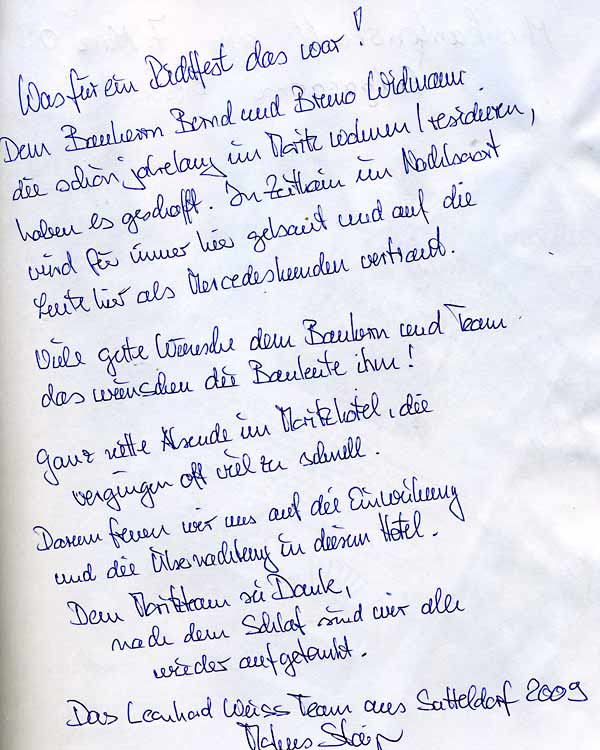 Was für ein Richtfest das war!
Dem Bauherrn Bernd und Bruno Widmann
die schon jahrelang im Moritz wohnen / residieren,
haben es geschafft. In Zeithain im Nachbarort
wird für immer hier gebaut und auf die
Leute hier als Mercedeskunden vertraut.
Viele gute Wünsche dem Bauherrn und Team
das wünschen die Bauleute ihm!
Ganz nette Abende im Moritzhotel, die
vergingen oft viel zu schnell.
Darum freuen wir uns auf die Einweihung
und die Übernachtung in diesem Hotel.
Dem Moritzteam sei Dank,
nach dem Schlaf sind wir alle
wieder aufgetankt.
Das Leonhard Weiss Team aus Satteldorf 2009